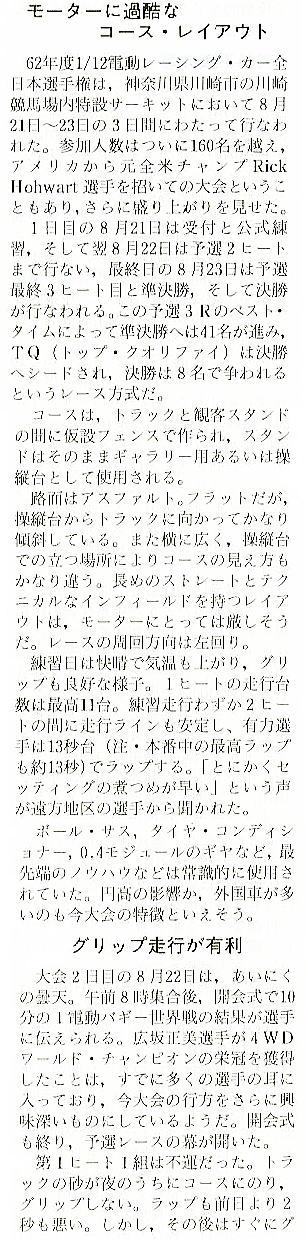 モーターに過酷な
コース・レイアウト
62年度1/12電動レーシング・カー全
日本選手権は，神奈川県川崎市の川崎
競馬場内特設サーキットにおいて８月
21日〜23日の３日間にわたって行なわ
れた。参加人数はついに160名を越え，
アメリカから元全米チャンプRick
Hohwart選手を招いての大会というこ
ともあり，さらに盛り上がりを見せた。
１日目の８月21日は受付と公式練
習，そして翌８月22日は予選２ヒート
まで行ない，最終日の８月23日は予選
最終３ヒート目と準決勝，そして決勝
が行なわれる。この予選３Ｒのベスト・
タイムによって準決勝へは41名が進み，
ＴＱ（トップ・クオリファイ）は決勝
へシードされ，決勝は８名で争われる
というレース方式だ。
コースは，トラックと観客スタンド
の間に仮設フェンスで作られ，スタン
ドはそのままギャラリー用あるいは操
縦台として使用される。
路面はアスファルト。フラットだが，
操縦台からトラックに向かってかなり
傾斜している。また横に広く，操縦台
での立つ場所によりコースの見え方も
かなり違う。長めのストレートとテク
ニカルなインフィールドを持つレイア
ウトは，モーターにとっては厳しそう
だ。レースの周回方向は左回り。
練習日は快晴で気温も上がり，グリ
ップも良好な様子。１ヒートの走行台
数は最高11台。練習走行わずか２ヒー
トの間に走行ラインも安定し，有力選
手は13秒台（注・本番中の最高ラップ
も約13秒)でラップする。「とにかくセ
ッティングの煮つめが早い」という声
が遠方地区の選手から聞かれた。
ボール・サス，タイヤ・コンディシ
ョナー，0.4モジュールのギヤなど，最
先端のノウハウなどは常識的に使用さ
れていた。円高の影響か，外国車が多
いのも今大会の特徴といえそう。
グリップ走行が有利
大会２日目の８月22日は，あいにく
の曇天。午前８時集合後，開会式で10
分の１電動バギー世界戦の結果が選手
に伝えられる。広坂正美選手が４ＷＤ
ワールド・チャンピオンの栄冠を獲得
したことは，すでに多くの選手の耳に
入っており，今大会の行方をさらに興
味深いものにしているようだ。開会式
も終り，予選レースの幕が開いた。
第１ヒート１組は不運だった。トラ
ックの砂が夜のうちにコースにのり，
グリップしない。ラップも前日より２
秒も悪い。しかし，その後はすぐにグ